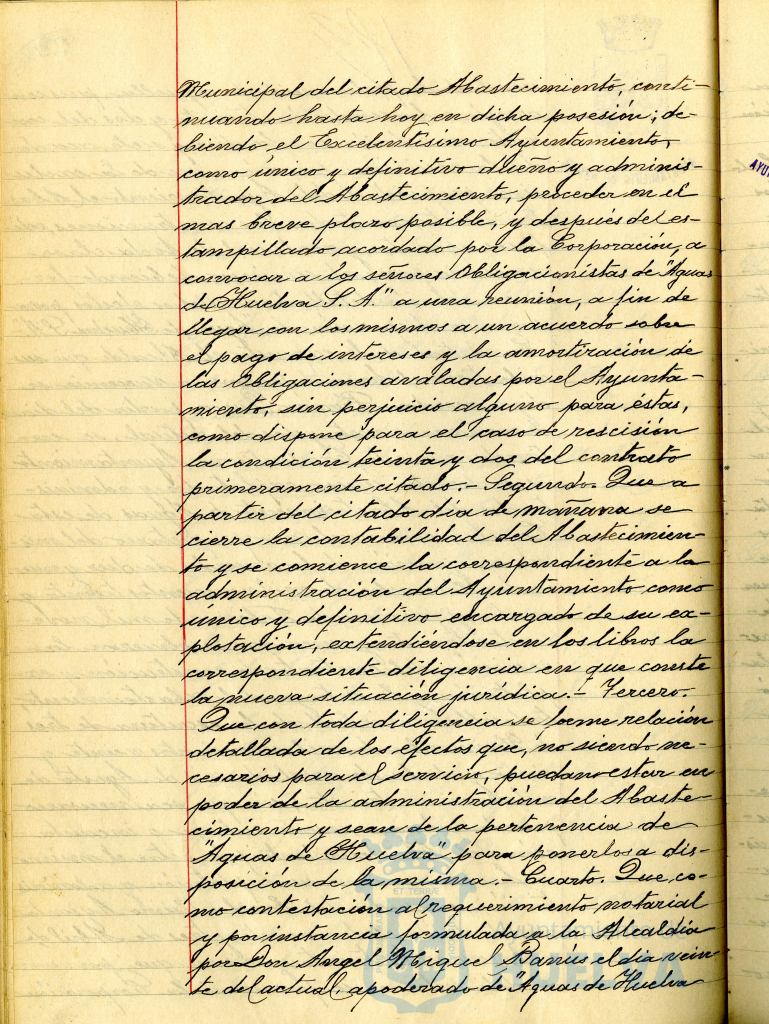 Municipal del citado Abastecimiento, conti-
nuando hasta hoy en dicha posesión; de-
biendo el Excelentísimo Ayuntamiento,
como único y definitivo dueño y adminis-
trador del Abastecimiento, proceder en el
mas breve plazo posible, y después del es-
tampillado acordado por la Corporación, a
convocar a los señores Obligacionistas de "Aguas
de Huelva S. A." a una reunión, a fin de
llegar con los mismos a un acuerdo sobre
el pago de intereses y la amortización de
las Obligaciones avaladas por el Ayunta-
miento, sin perjuicio alguno para éstas,
como dispone para el caso de rescisión
la condición treinta y dos del contrato
primeramente citado.- Segundo. Que a
partir del citado día de mañana se
cierre la contabilidad del Abastecimien-
to y se comience la correspondiente a la
administración del Ayuntamiento como
único y definitivo encargado de su ex-
plotación, extendiéndose en los libros la
correspondiente diligencia en que conste
la nueva situación jurídica.- Tercero.-
Que con toda diligencia se forme relación
detallada de los efectos que, no siendo ne-
cesarios para el servicio, puedan estar en
poder de la administración del Abaste-
cimiento y sean de la pertenencia de
"Aguas de Huelva" para ponerlos a dis-
posición de la misma.- Cuarto. Que co-
mo contestación al requerimiento notarial
y por instancia formulada a la Alcaldía
por Don Angel Miguel Barrús el dia vein-
te del actual, apoderado de "Aguas de Huelva
HUELVA